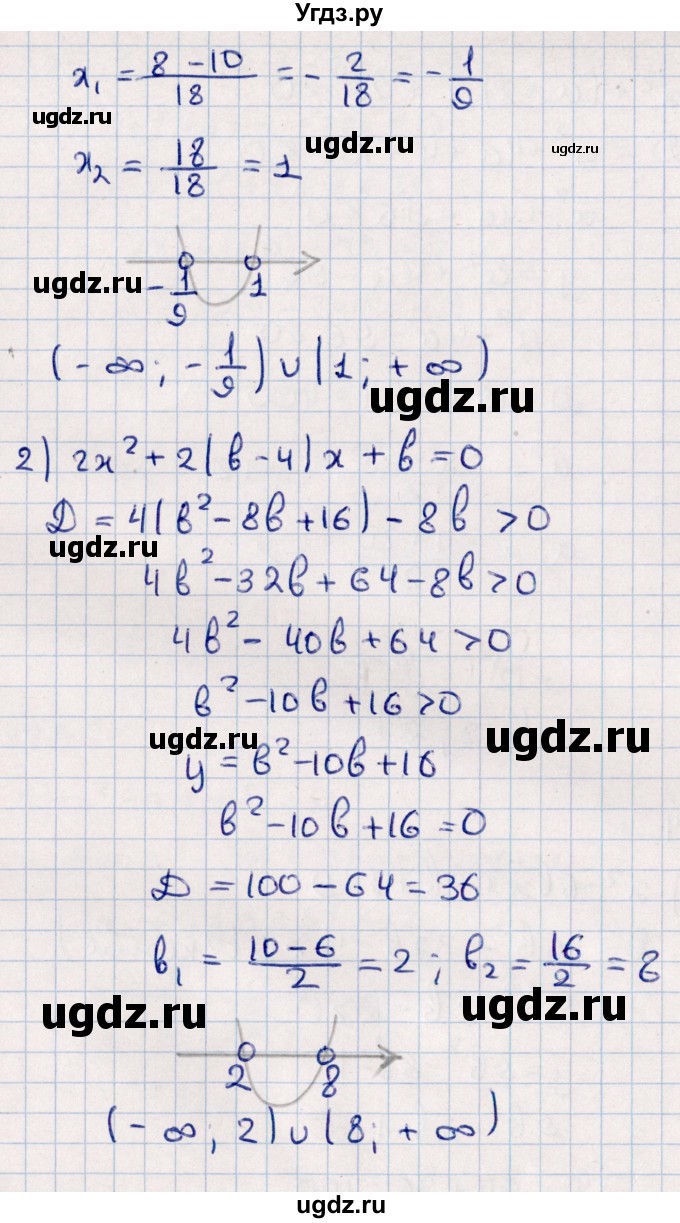 Угдз.ру
x₁ = (8 − 10)/18 = −2/18 = −1/9
ugdz.ru ugdz.ru ugdz.ru
x₂ = 18/18 = 1
ugdz.ru
−1/9 1
(−∞; −1/9) ∪ (1; +∞)
ugdz.ru
2) 2x² + 2(в − 4)x + в = 0
Д = 4(в² − 8в + 16) − 8в > 0
ugdz.ru
4в² − 32в + 64 − 8в > 0
4в² − 40в + 64 > 0
в² − 10в + 16 > 0
ugdz.ru ugdz.ru
y = в² − 10в + 16
в² − 10в + 16 = 0
Д = 100 − 64 = 36
в₁ = (10 − 6)/2 = 2; в₂ = 16/2 = 8
ugdz.ru ugdz.ru
2 8
(−∞; 2) ∪ (8; +∞)
ugdz.ru